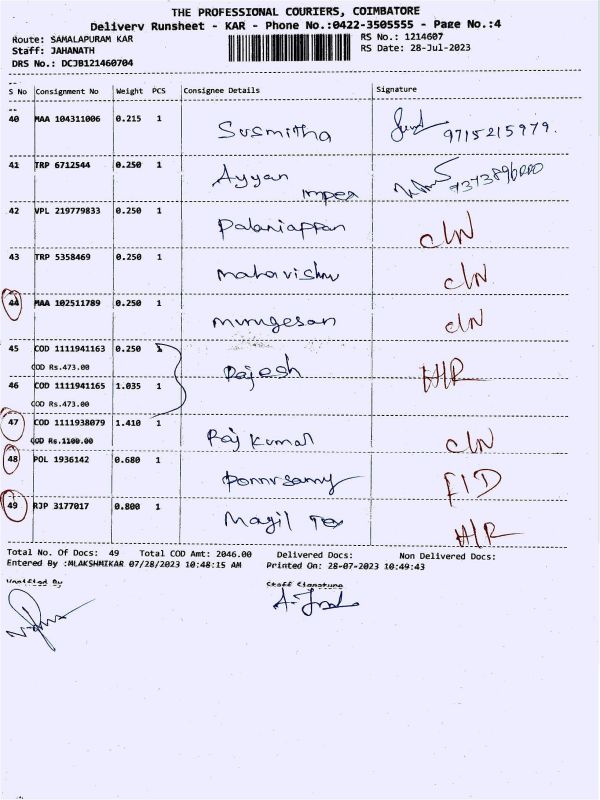 THE PROFESSIONAL COURIERS, COIMBATORE
Delivery Runsheet - KAR - Phone No.:0422-3505555 - Page No.:4
Route: SAMALAPURAM KAR RS No.: 1214607
Staff: JAHANATH RS Date: 28-Jul-2023
DRS No.: DCJB121460704
S No Consignment No Weight PCS Consignee Details Signature
40 MAA 104311006 0.215 1 Susmitha 9715215979.
41 TRP 6712544 0.250 1 Ayyan Impex
42 VPL 219779833 0.250 1 Palaniappan C/N
43 TRP 5358469 0.250 1 Mahavishnu C/N
44 MAA 102511789 0.250 1 Murugesan C/N
45 COD 1111941163 0.250 1 Rajesh H/R
COD Rs.473.00
46 COD 1111941165 1.035 1
COD Rs.473.00
47 COD 1111938079 1.410 1 Raj Kumar C/N
COD Rs.1100.00
48 POL 1936142 0.680 1 Ponnusamy F/D
49 RJP 3177017 0.800 1 Magil Tex H/R
Total No. Of Docs: 49 Total COD Amt: 2046.00 Delivered Docs: Non Delivered Docs:
Entered By :MLAKSHMIKAR 07/28/2023 10:48:15 AM Printed On: 28-07-2023 10:49:43
Verified By Staff Signature